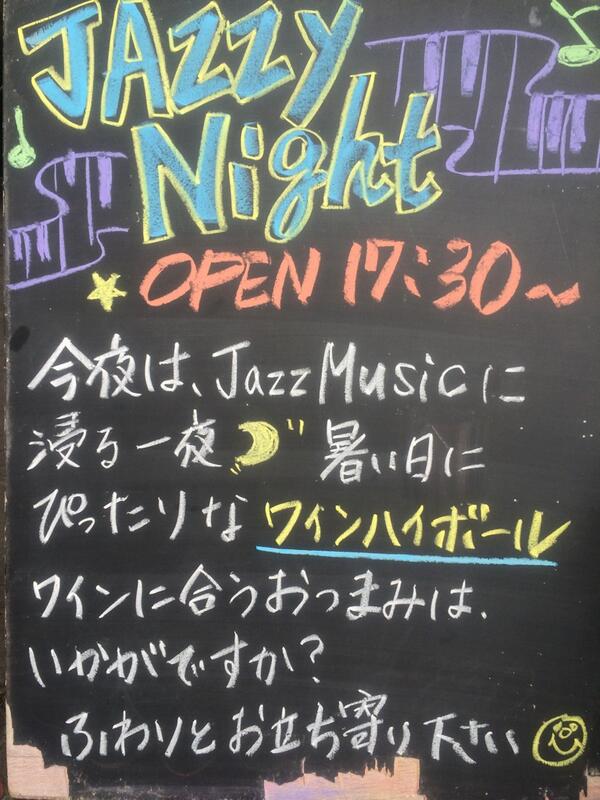 JAzzy
Night
OPEN 17:30～
今夜は、Jazz Musicに
浸る一夜 暑い日に
ぴったりな ワインハイボール
ワインに合うおつまみは、
いかがですか?
ふわりとお立ち寄り下さい